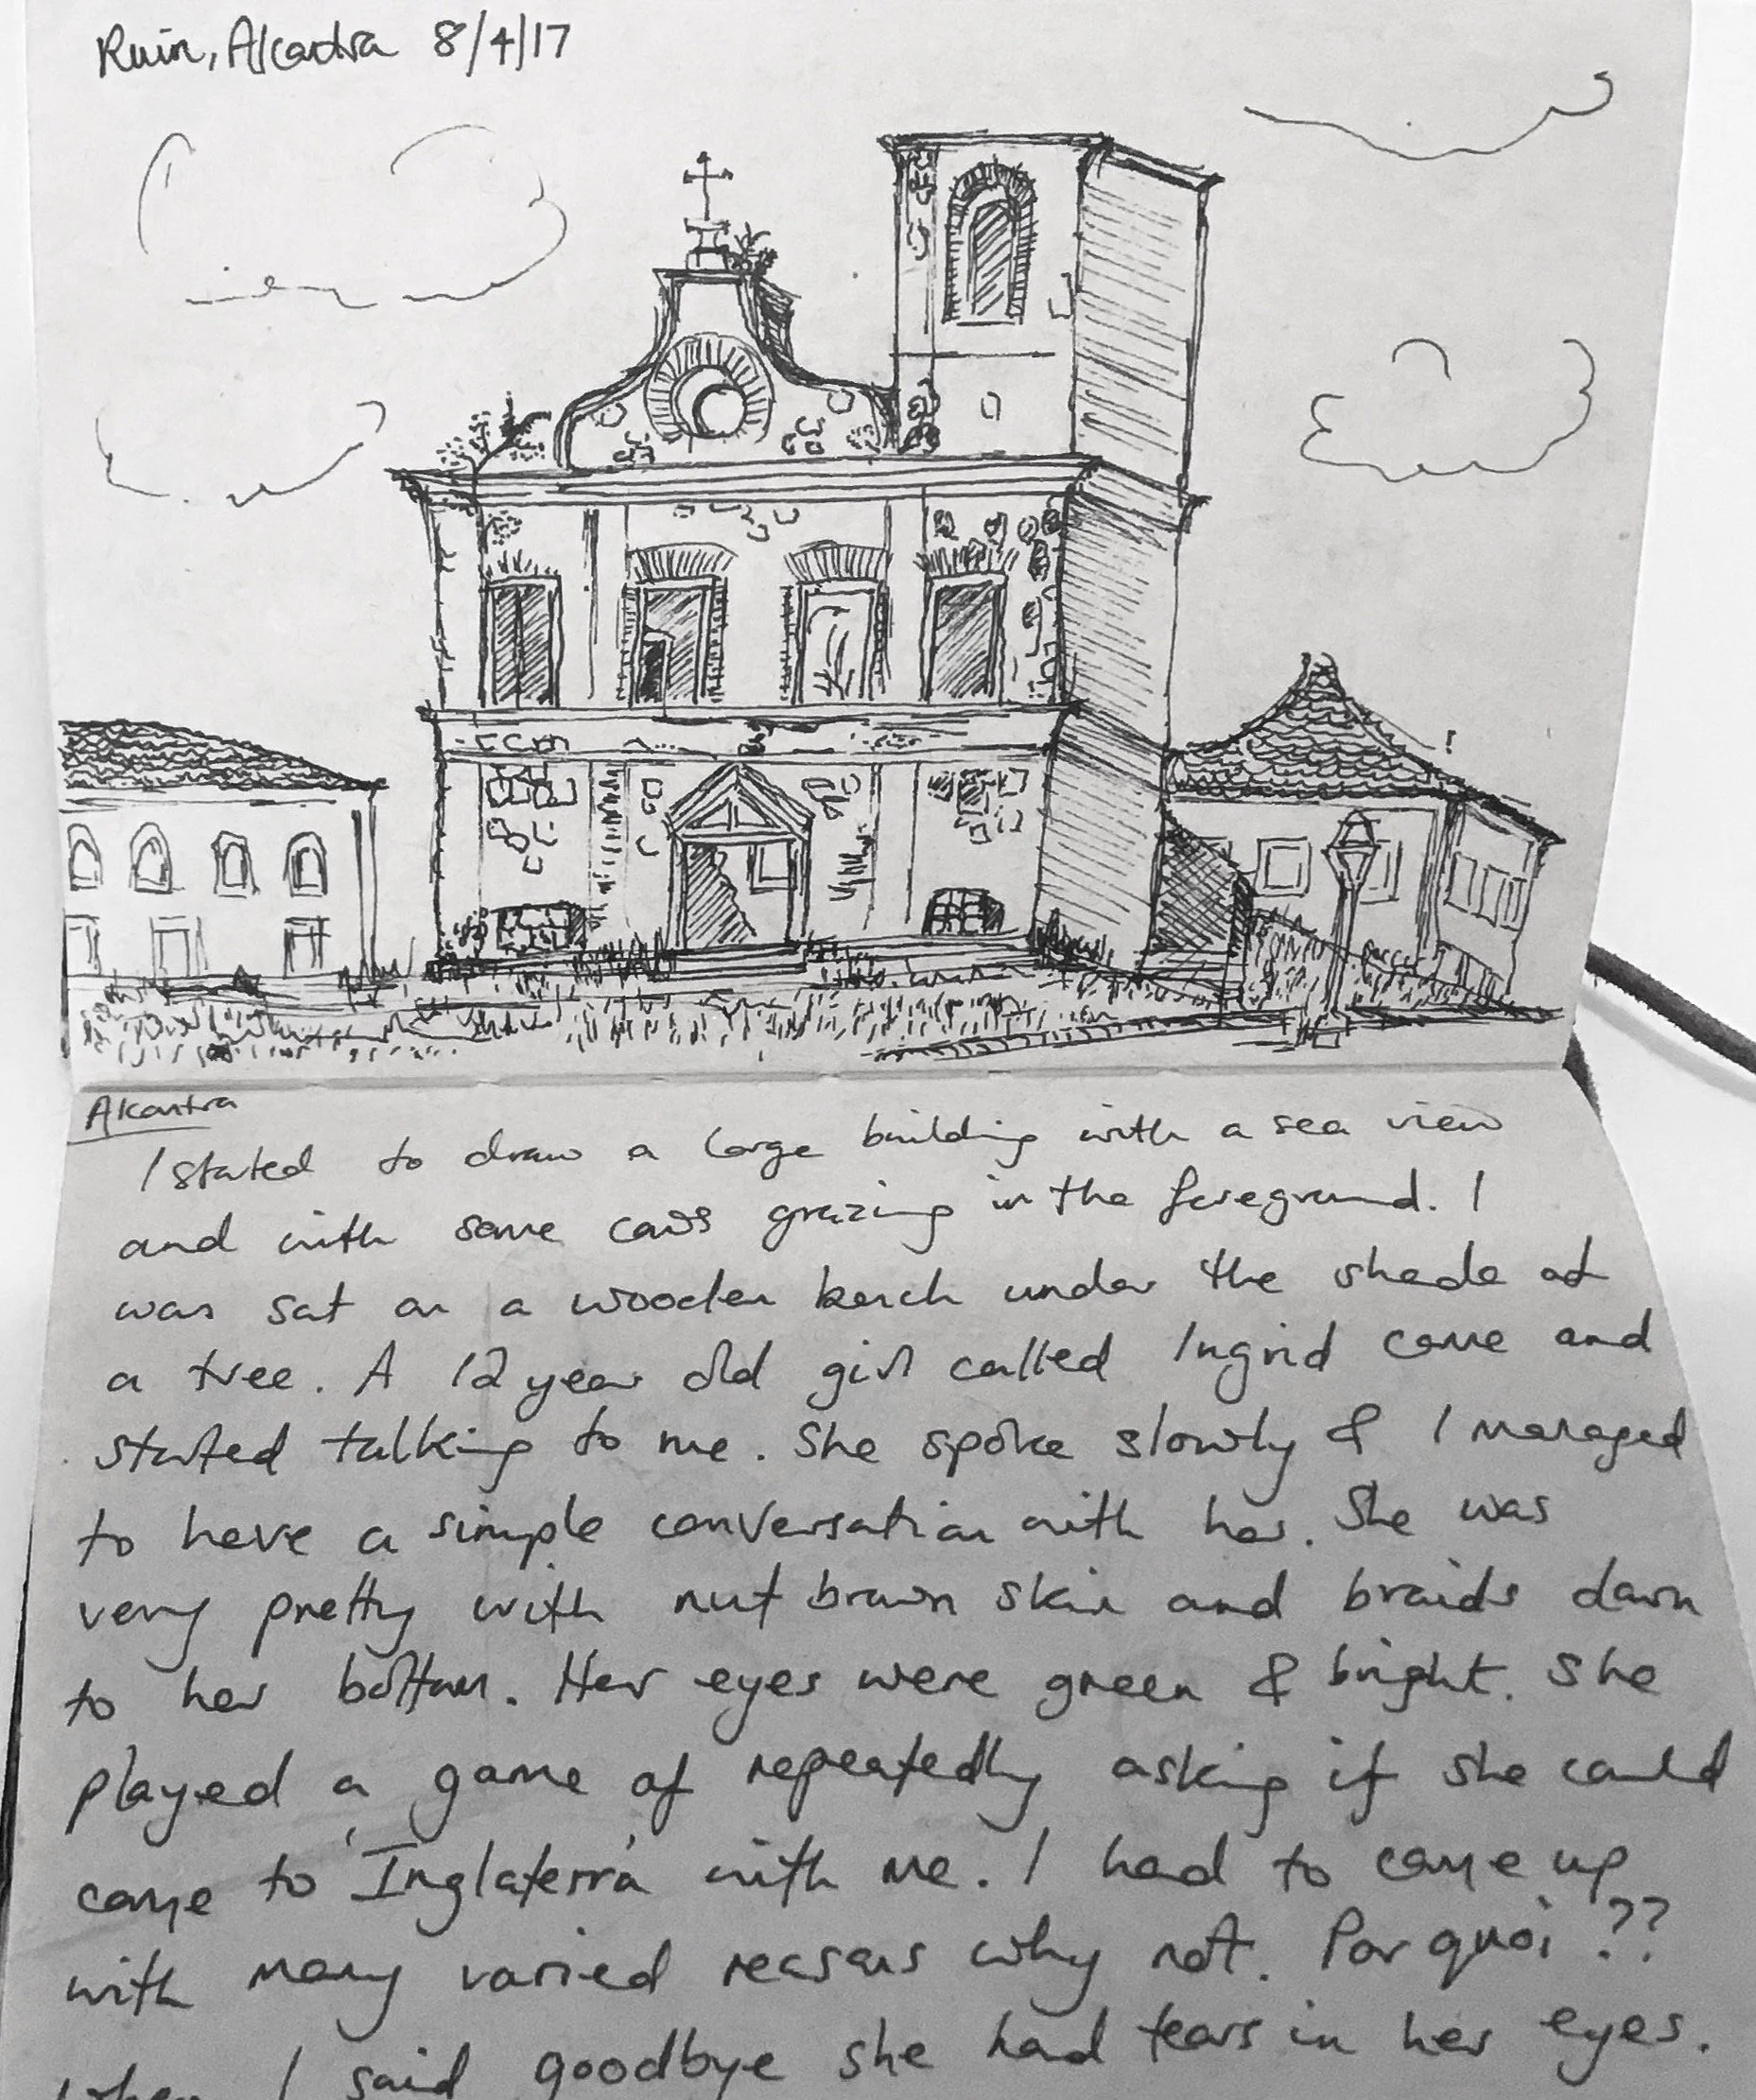 Ruin, Alcantra 8/4/17
Alcantra
I started to draw a large building with a sea view
and with some cows grazing in the foreground. I
was sat on a wooden bench under the shade of
a tree. A 12 year old girl called Ingrid came and
started talking to me. She spoke slowly & I managed
to have a simple conversation with her. She was
very pretty with nut brown skin and braids down
to her bottom. Her eyes were green & bright. She
played a game of repeatedly asking if she could
come to 'Inglaterra' with me. I had to come up
with many varied reasons why not. Por quoi ??
When I said goodbye she had tears in her eyes.